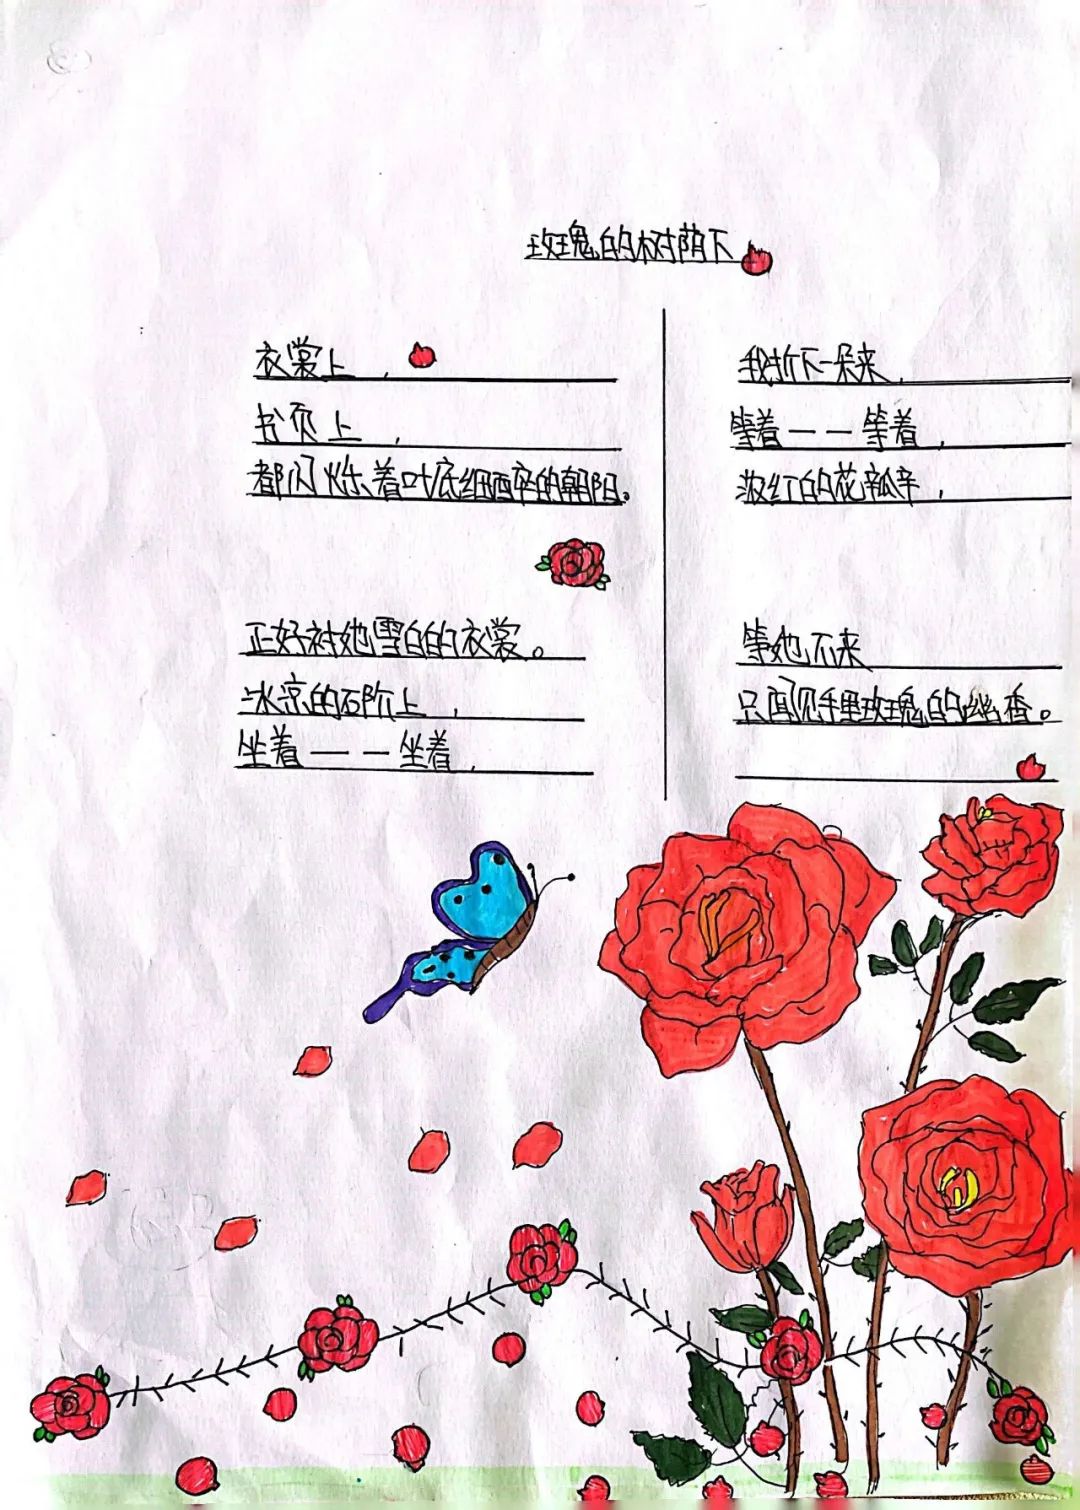 玫瑰的树荫下
衣裳上，
书页上，
都闪烁着叶底细碎的朝阳。
我折下一朵来，
等着——等着，
浓红的花瓣，
正好衬她雪白的衣裳。
冰凉的石阶上，
坐着——坐着，
等她不来
只闻见手里玫瑰的幽香。